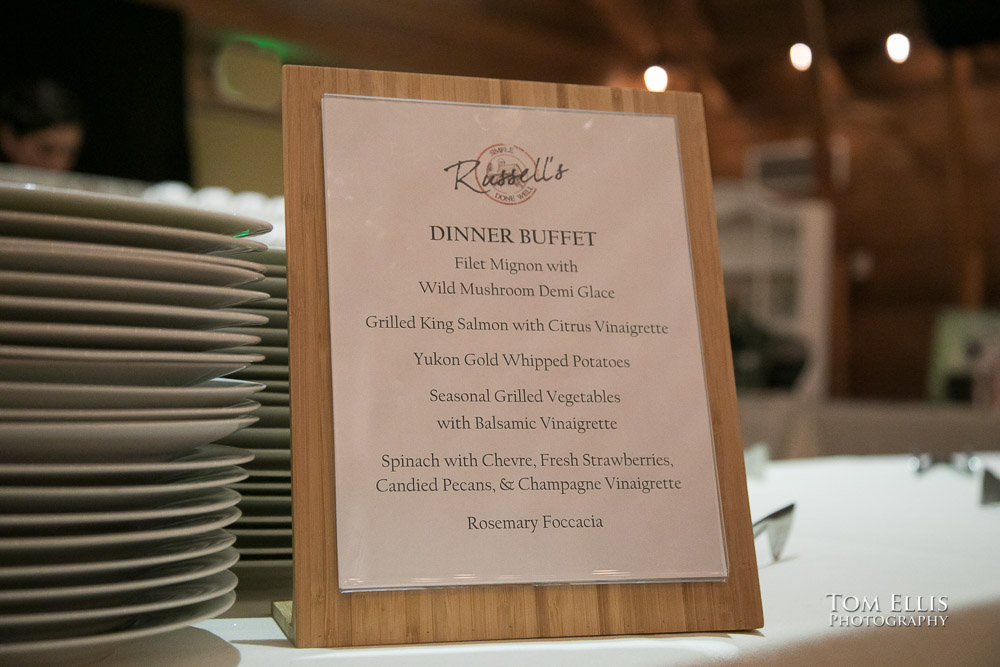 SIMPLE
Russell's
DONE WELL
DINNER BUFFET
Filet Mignon with
Wild Mushroom Demi Glace
Grilled King Salmon with Citrus Vinaigrette
Yukon Gold Whipped Potatoes
Seasonal Grilled Vegetables
with Balsamic Vinaigrette
Spinach with Chevre, Fresh Strawberries,
Candied Pecans, & Champagne Vinaigrette
Rosemary Foccacia
TOM ELLIS
PHOTOGRAPHY